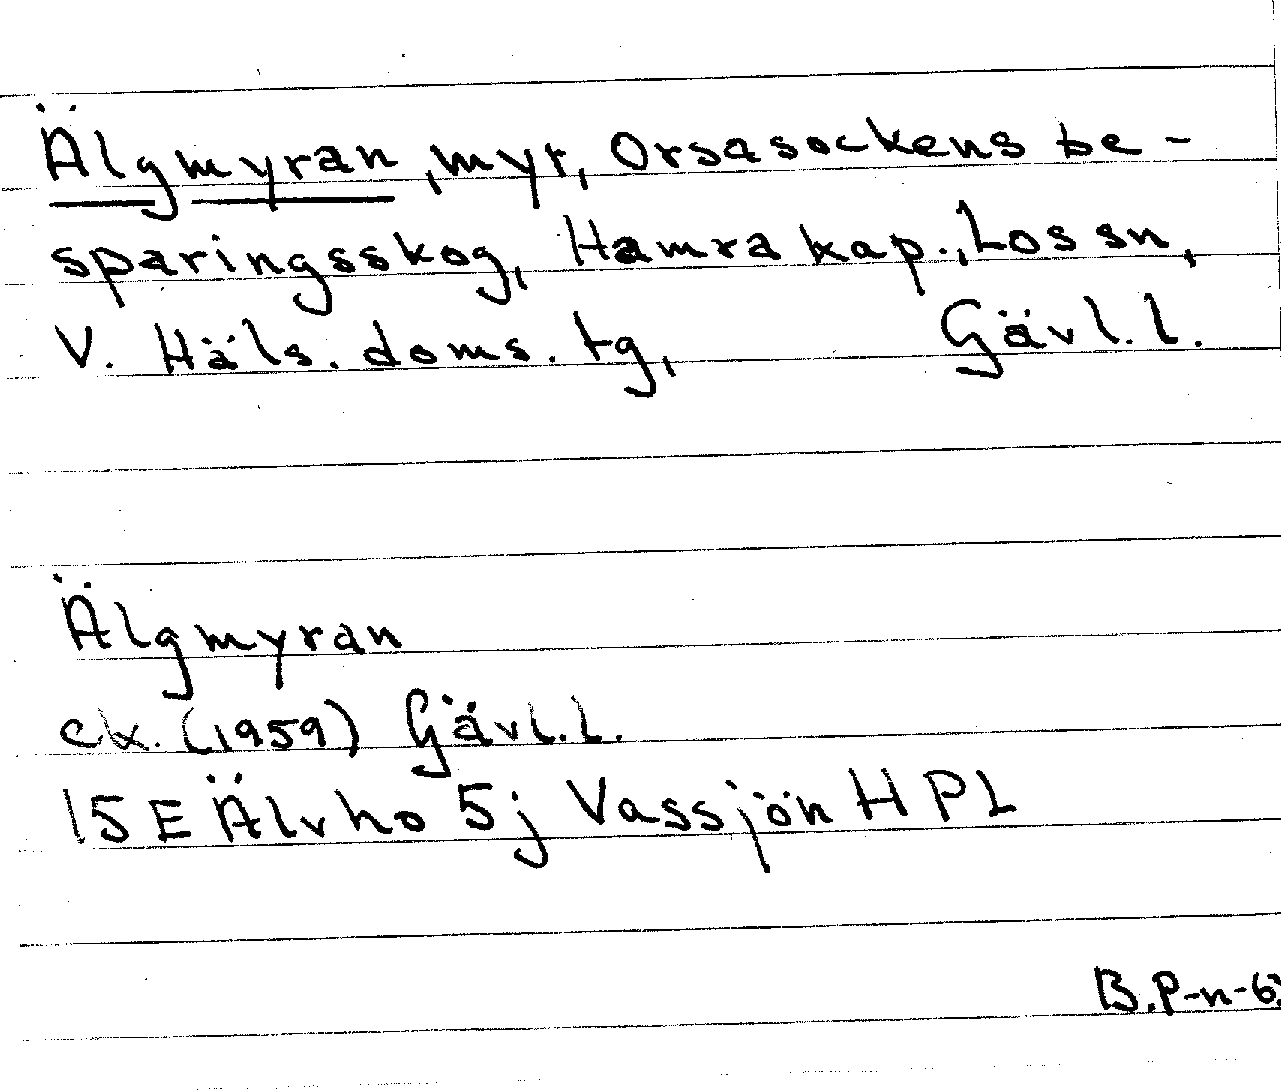 Älgmyran, myr, Orsasockens be-
sparingsskog, Hamra kap., Los sn,
V. Häls. doms. tg, Gävl. l.
Älgmyran
ek. (1959) Gävl. l.
15 E Älvho 5j Vassjön HPL
B.P-n-6